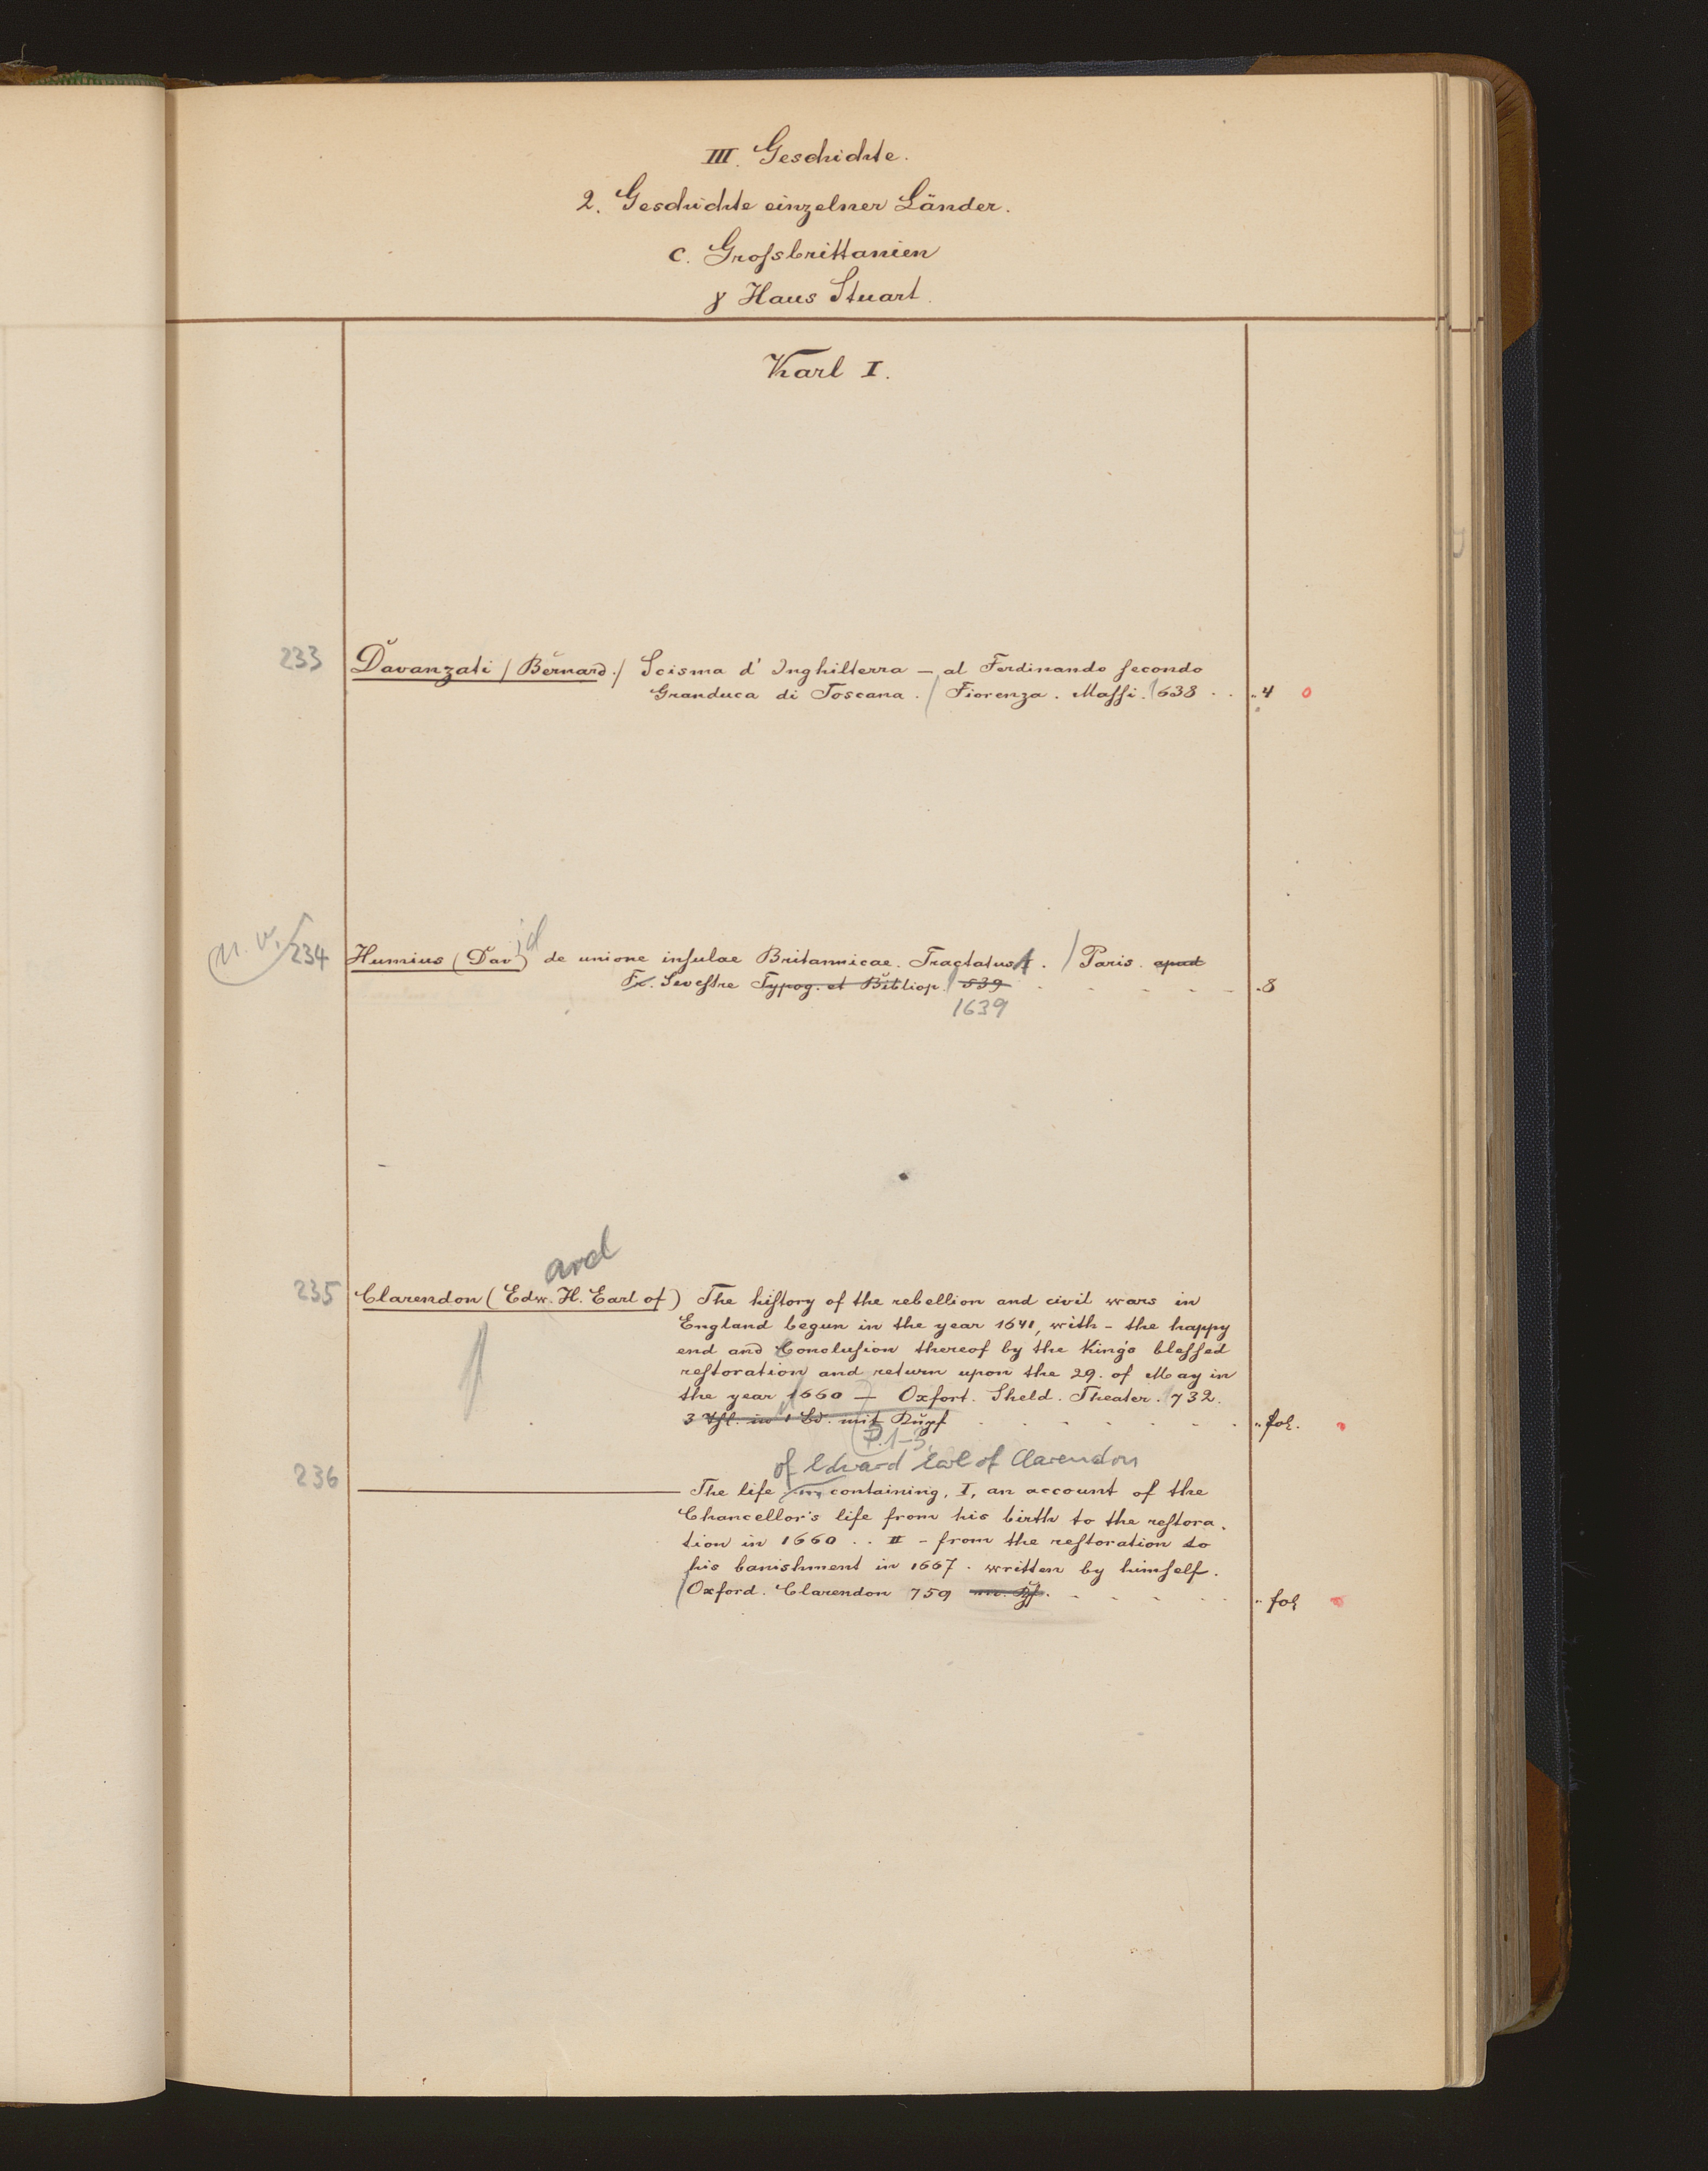 III. Geschichte.
2. Geschichte einzelner Länder.
c. Grossbrittanien
γ Haus Stuart.
Karl I.
233 Davanzati / Bernard. / Scisma d' Inghilterra – al Ferdinando secondo
Granduca di Toscana. / Fiorenza. Massi. 1638 . . „ 4 o
(n. v.) 234 Humius (David) de unione insulae Britannicae. Tractatus I. / Paris. apud
Fr. Sevestre Typog. et Bibliop. 639 . 8
1639
ard
235 Clarendon (Edw. H. Earl of) The history of the rebellion and civil wars in
England begun in the year 1641, with – the happy
end and Conclusion thereof by the King's blessed
restoration and return upon the 29. of May in
the year 1660 – Oxfort. Sheld. Theater. 1732.
3 Thl. in 1 Bd. mit Kupf „ fol.
P. 1–3.
of Edward Earl of Clarendon
236 ——— The life containing, I, an account of the
Chancellor's life from his birth to the restora.
tion in 1660 . . II – from the restoration to
his banishment in 1667. written by himself.
/ Oxford. Clarendon 759 m. Kpf. „ fol